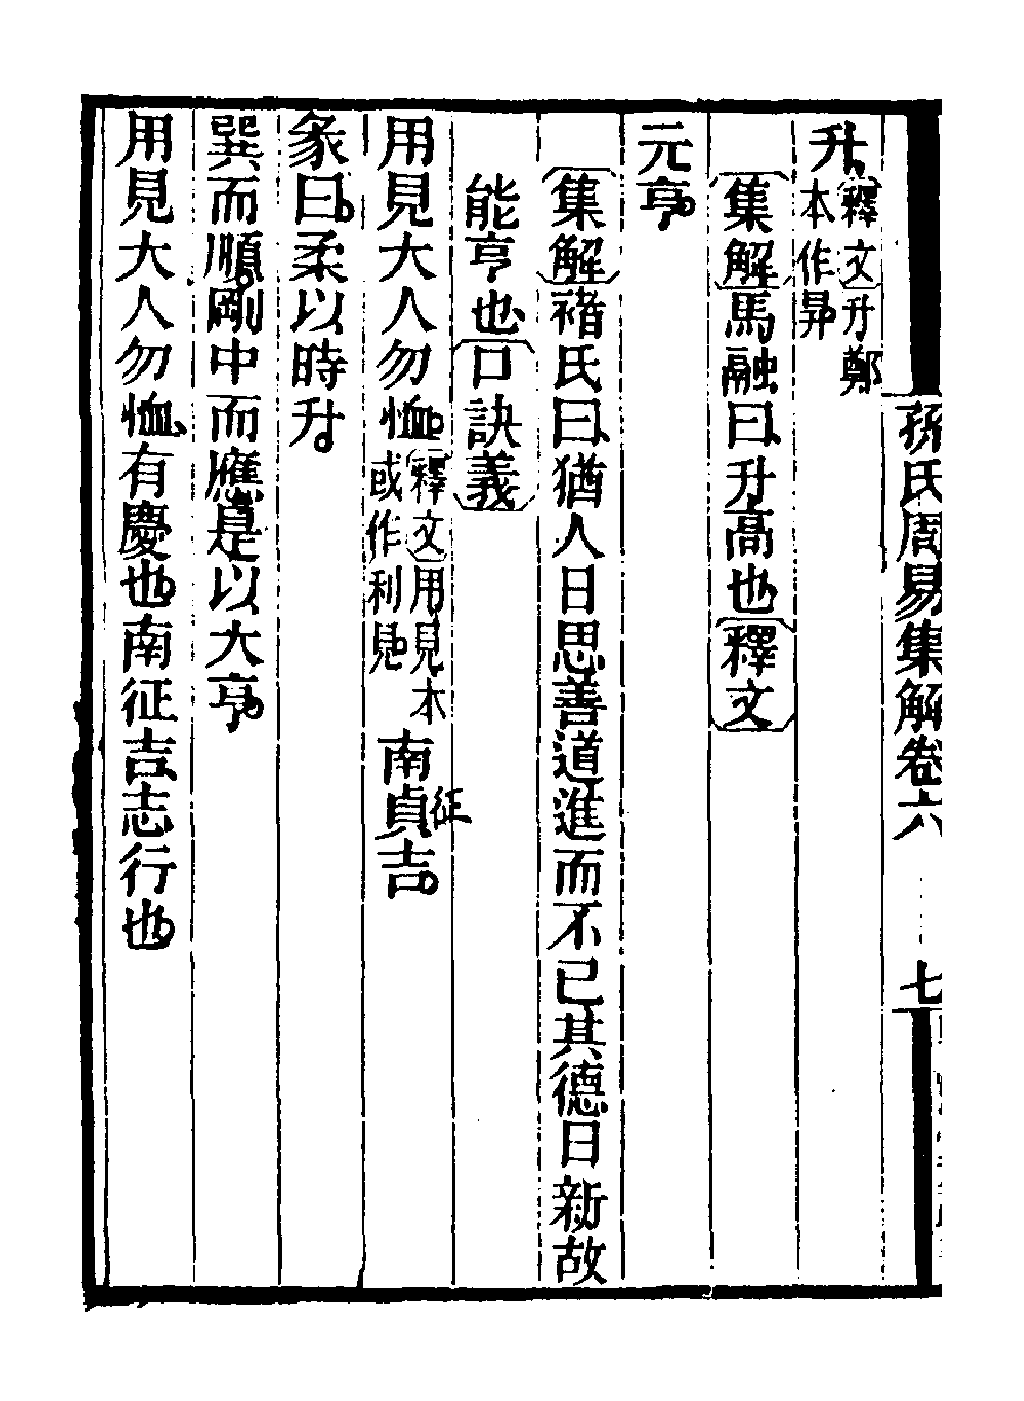 孫氏周易集解卷六 七
升〔釋文〕升鄭本作昇
〔集解〕馬融曰升高也〔釋文〕
元亨
〔集解〕褚氏曰猶人日思善道進而不已其德日新故
能亨也〔口訣義〕
用見大人勿恤〔釋文〕用見本或作利見南貞吉
征
彖曰柔以時升
巽而順剛中而應是以大亨
用見大人勿恤有慶也南征吉志行也